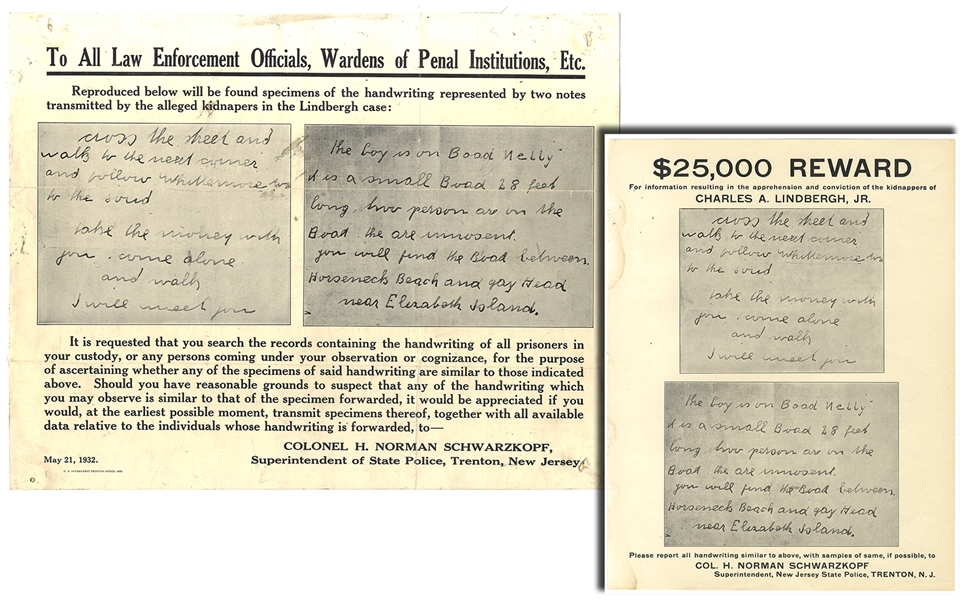 To All Law Enforcement Officials, Wardens of Penal Institutions, Etc.
Reproduced below will be found specimens of the handwriting represented by two notes
transmitted by the alleged kidnapers in the Lindbergh case:
cross the street and
walk to the next corner
and follow Whittemore
to the soud
take the money with
you. come alone
and walk
I will meet you
the boy is on Boad Nelly
it is a small Boad 28 feet
long. two person are on the
Boad. the are innosent.
you will find the Boad between
Horseneck Beach and gay Head
near Elizabeth Island.
It is requested that you search the records containing the handwriting of all prisoners in
your custody, or any persons coming under your observation or cognizance, for the purpose
of ascertaining whether any of the specimens of said handwriting are similar to those indicated
above. Should you have reasonable grounds to suspect that any of the handwriting which
you may observe is similar to that of the specimen forwarded, it would be appreciated if you
would, at the earliest possible moment, transmit specimens thereof, together with all available
data relative to the individuals whose handwriting is forwarded, to—
COLONEL H. NORMAN SCHWARZKOPF,
May 21, 1932. Superintendent of State Police, Trenton, New Jersey.
$25,000 REWARD
For information resulting in the apprehension and conviction of the kidnappers of
CHARLES A. LINDBERGH, JR.
cross the street and
walk to the next corner
and follow Whittemore
to the soud
take the money with
you. come alone
and walk
I will meet you
the boy is on Boad Nelly
it is a small Boad 28 feet
long. two person are on the
Boad. the are innosent.
you will find the Boad between
Horseneck Beach and gay Head
near Elizabeth Island.
Please report all handwriting similar to above, with samples of same, if possible, to
COL. H. NORMAN SCHWARZKOPF
Superintendent, New Jersey State Police, TRENTON, N. J.